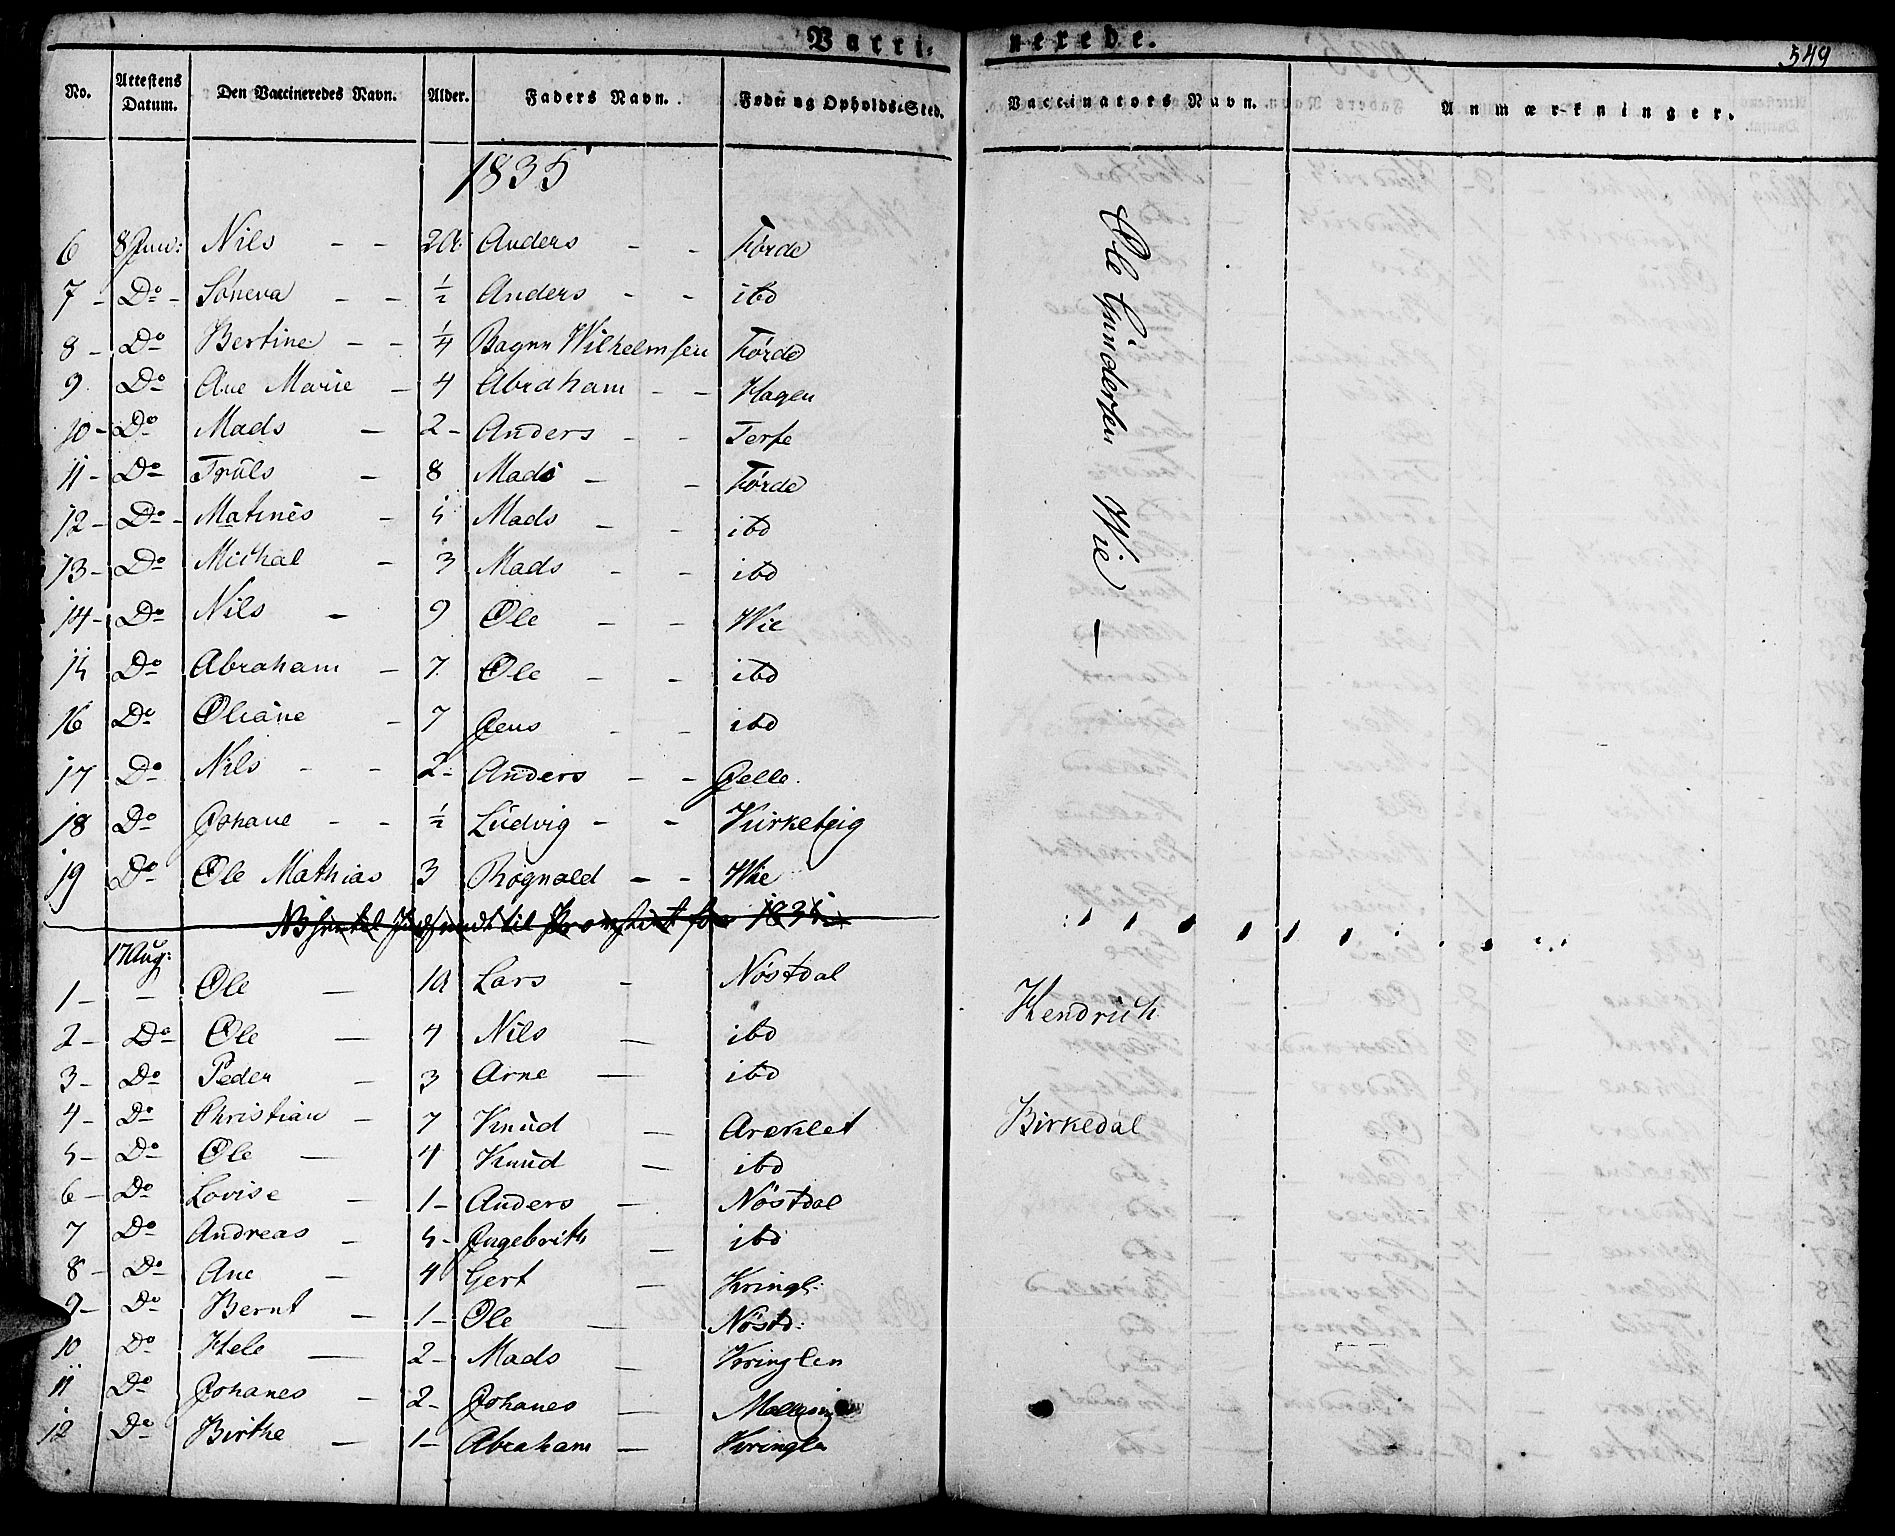 Vacci- nerede. 549
No. Attestens Datum. Den Vaccineredes Navn. Alder. Faders Navn. Føde og Opholds-Sted. Vaccinators Navn. Anmærkninger.
1835
6 8 Juni: Nils - - 2 Anders - - Førde
7 - Do - Söneva - - ½ Anders - - ibd
8 - Do Bertine - - ¼ Wilhelmsen Førde
9 Do Ane Marie - 4 Abraham - - Hagen
10 - Do Mads - 2 - Anders - - Terse
11 - Do Truls - 8 Mads - - Førde
12 - Do - Matines - 5 Mads - - ibd
13 - Do Michal - 3 Mads - - ibd
14 - Do Nils - 9 Ole - - Wie
15 Do Abraham - 7 Ole - - ibd
16 Do Oliane - 7 Jens - - ibd
17 Do Nils - - 2 - Anders - - Jelle.
18 Do Johane - - ½ Ludvig - - Kirketeig
19 Do Ole Mathias 3 Rognald - - Wie
Ole Gundersen Wie -
til for 1835
17 Aug:
1 - - Ole - Lars - Nöstdal
2 - Do Ole - 4 Nils - ibd
Hendrich
3 - Do Peder - 3 Arne - ibd
4 - Do Christian - 7 Knud - Areklet
Birkedal
5 - Do Ole - 4 Knud - ibd
6 - Do Lovise - 1 - Anders - Nöstdal
7 Do Andreas - 5 - Ingebrith - ibd
8 - Do Ane - 4 Gert - Kringl:
9 - Do Bernt - 1 - Ole - Nöstd:
10 Do Hele - 2 - Mads - Kringlen
11 Do Johanes - 2 - Johanes -
12 Do Birthe - 1 - Abraham - Kringlen